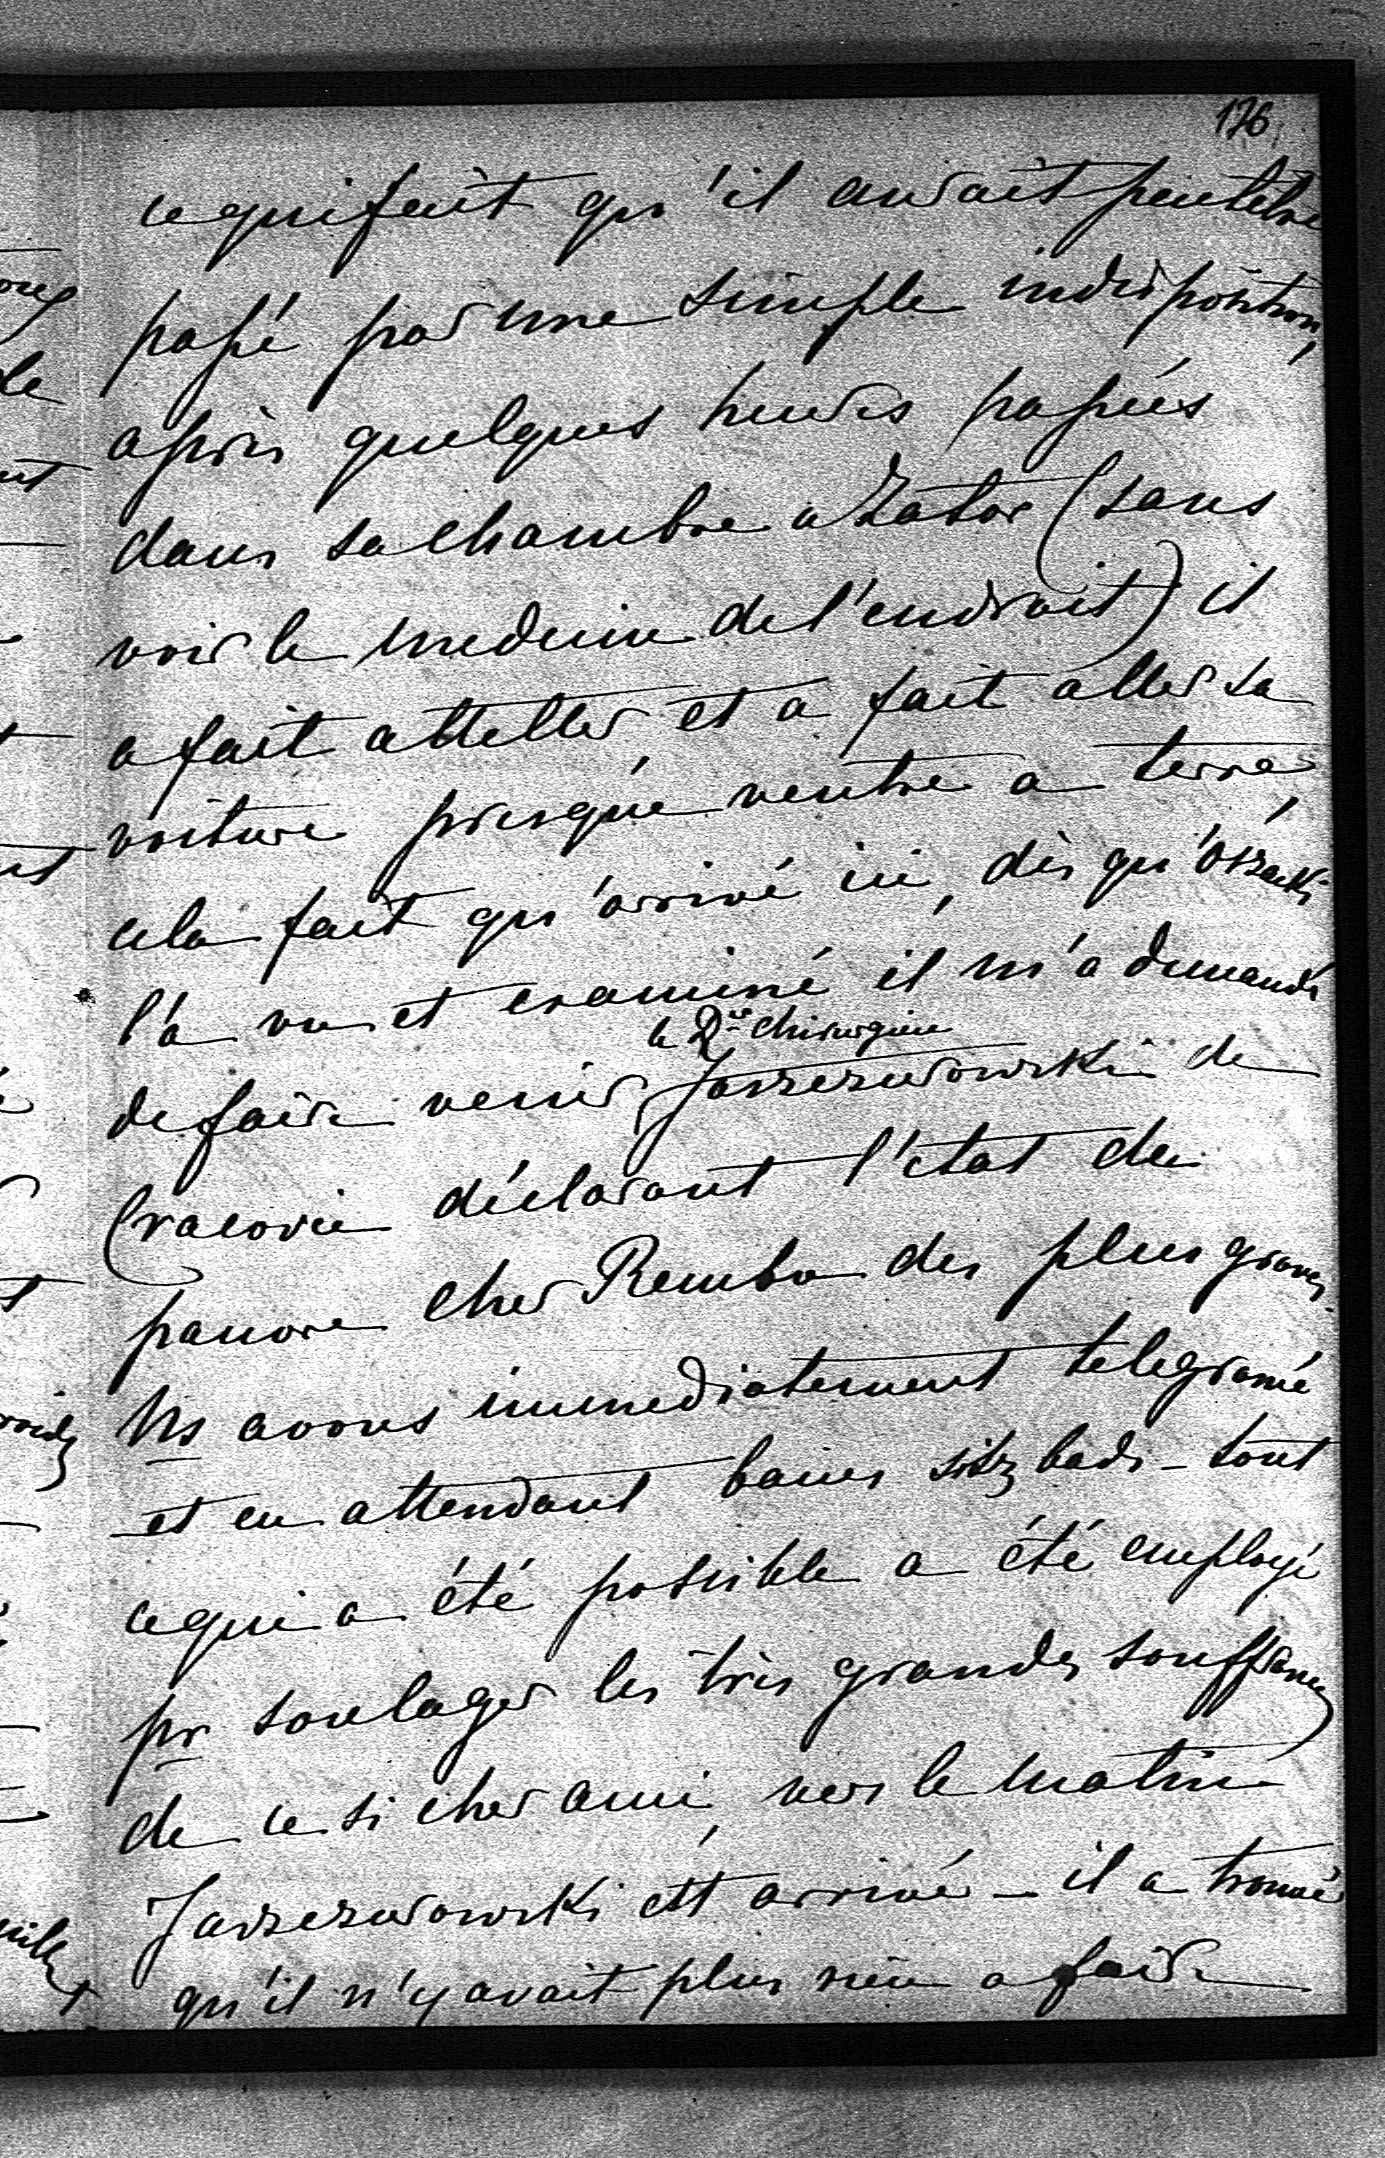 176
ce qui fait qu'il aurait peutetre
passé par une simple indisposition,
après quelques heures passées
dans sa chambre a Zator (sans
voir le medecin de l'endroit) il
a fait atteller et a fait aller sa
voiture presque ventre a terre,
cela fait qu'arrivé ici, dès qu'
l'a vu et examiné il m'a demandé
le Dr chirurgien
de faire venir Jaszezurowski de
Cracovie déclarant l'état de
pauvre cher Rembo des plus graves.
Ns avons immediatement telegramé
et en attendant bains sitzbads - tout
ce qui a été possible a été employé
pr soulager les très grandes souffrances
de ce si cher ami, vers le matin
Jaszezurowski est arrivé - il a trouvé
qu'il n'y avait plus rien a faire